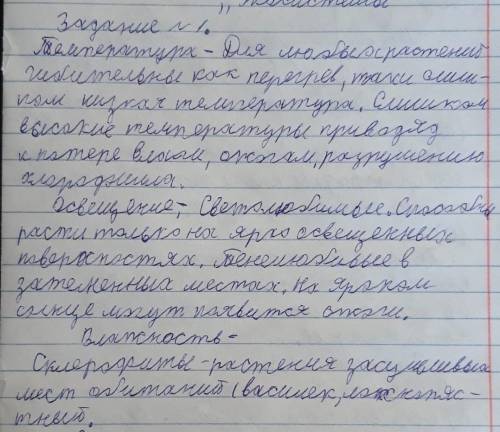 Задание №1.
Температура - Для любых растений
губительны как перегрев, так и слиш-
ком низкая температура. Слишком
высокие температуры приводяд
к потере влаги, ожогам, разрушению
хлорофилла.
Освещение, - Светолюбимые. Способны
расти только на ярко освещенных
поверхностях. Тенелюбивые в
затемненных местах. На ярком
солнце могут появится ожоги.
Влажность -
Склерофиты - растения засушливых
мест обитаний (василек,
тный.